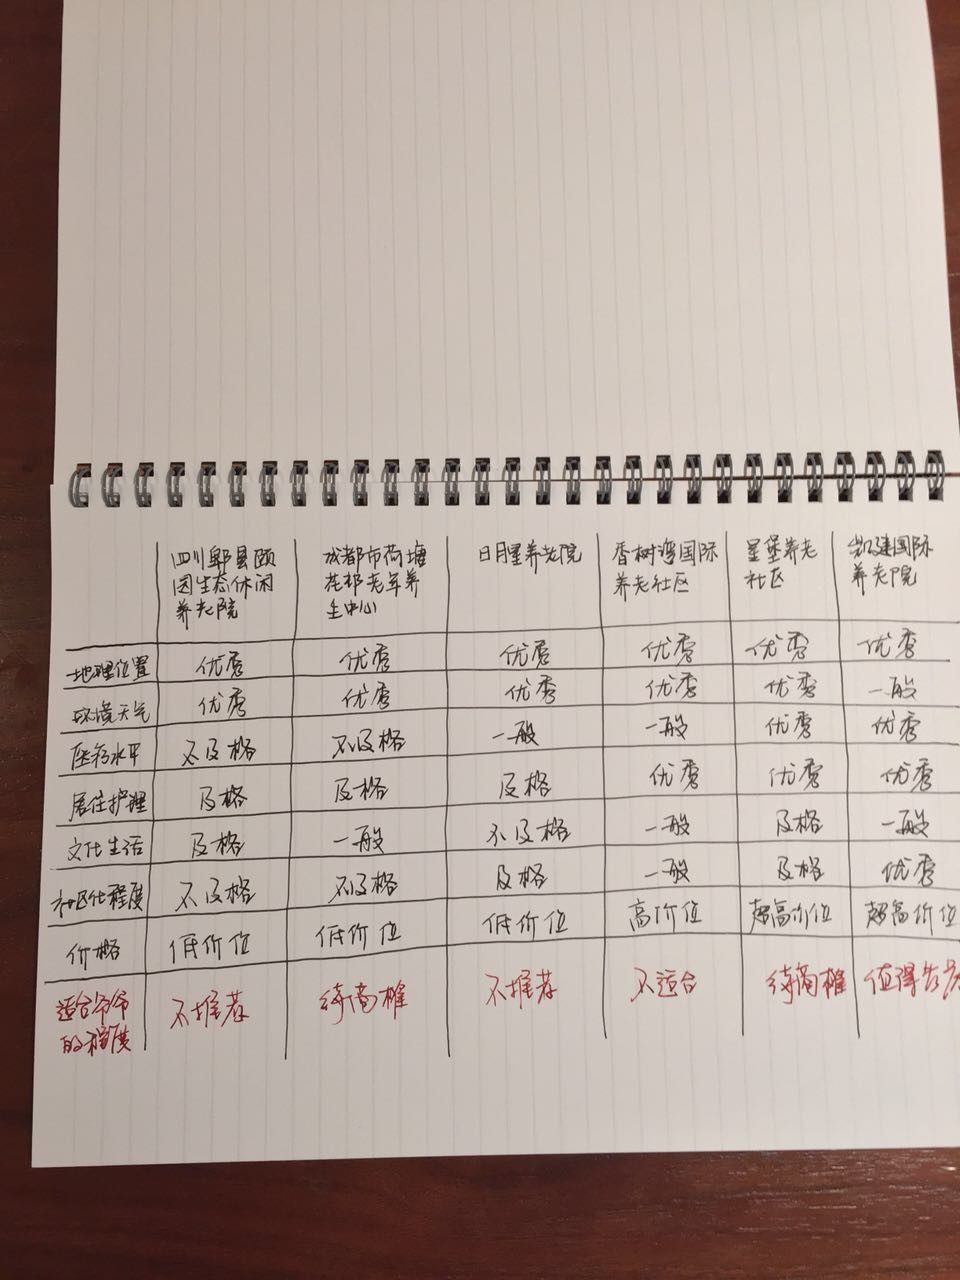 四川郫县颐
园生态休闲
养老院
成都市荷塘
花都老年养
生中心
日月星养老院
香树湾国际
养老社区
星堡养老
社区
凯健国际
养老院
地理位置 优秀 优秀 优秀 优秀 优秀 优秀
环境天气 优秀 优秀 优秀 优秀 优秀 一般
医疗水平 不及格 不及格 一般 一般 优秀 优秀
居住护理 及格 及格 及格 优秀 优秀 优秀
文化生活 及格 一般 不及格 一般 及格 一般
社区化程度 不及格 不及格 及格 一般 及格 优秀
价格 低价位 低价位 低价位 高价位 超高价位 超高价位
适合爷爷
的程度
不推荐 待商榷 不推荐 不适合 待商榷 值得